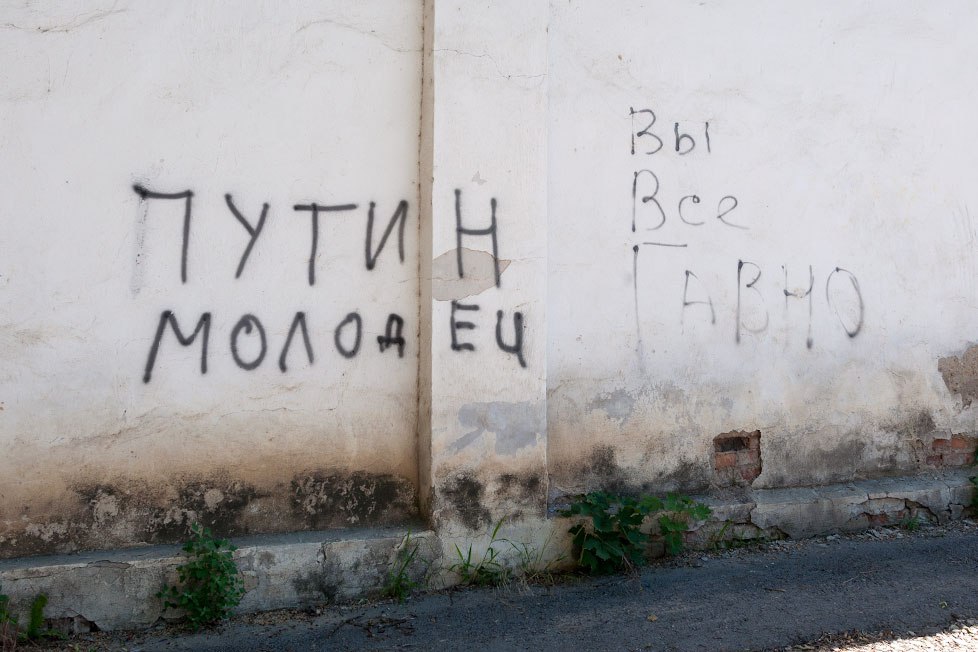 ПУТИН
МОЛОДЕЦ
Вы
Все
ГАВНО